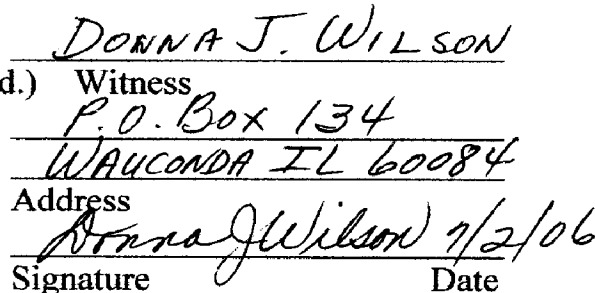 DONNA J. WILSON
d.) Witness
P.O. Box 134
WAUCONDA IL 60084
Address
Donna J Wilson 7/2/06
Signature Date